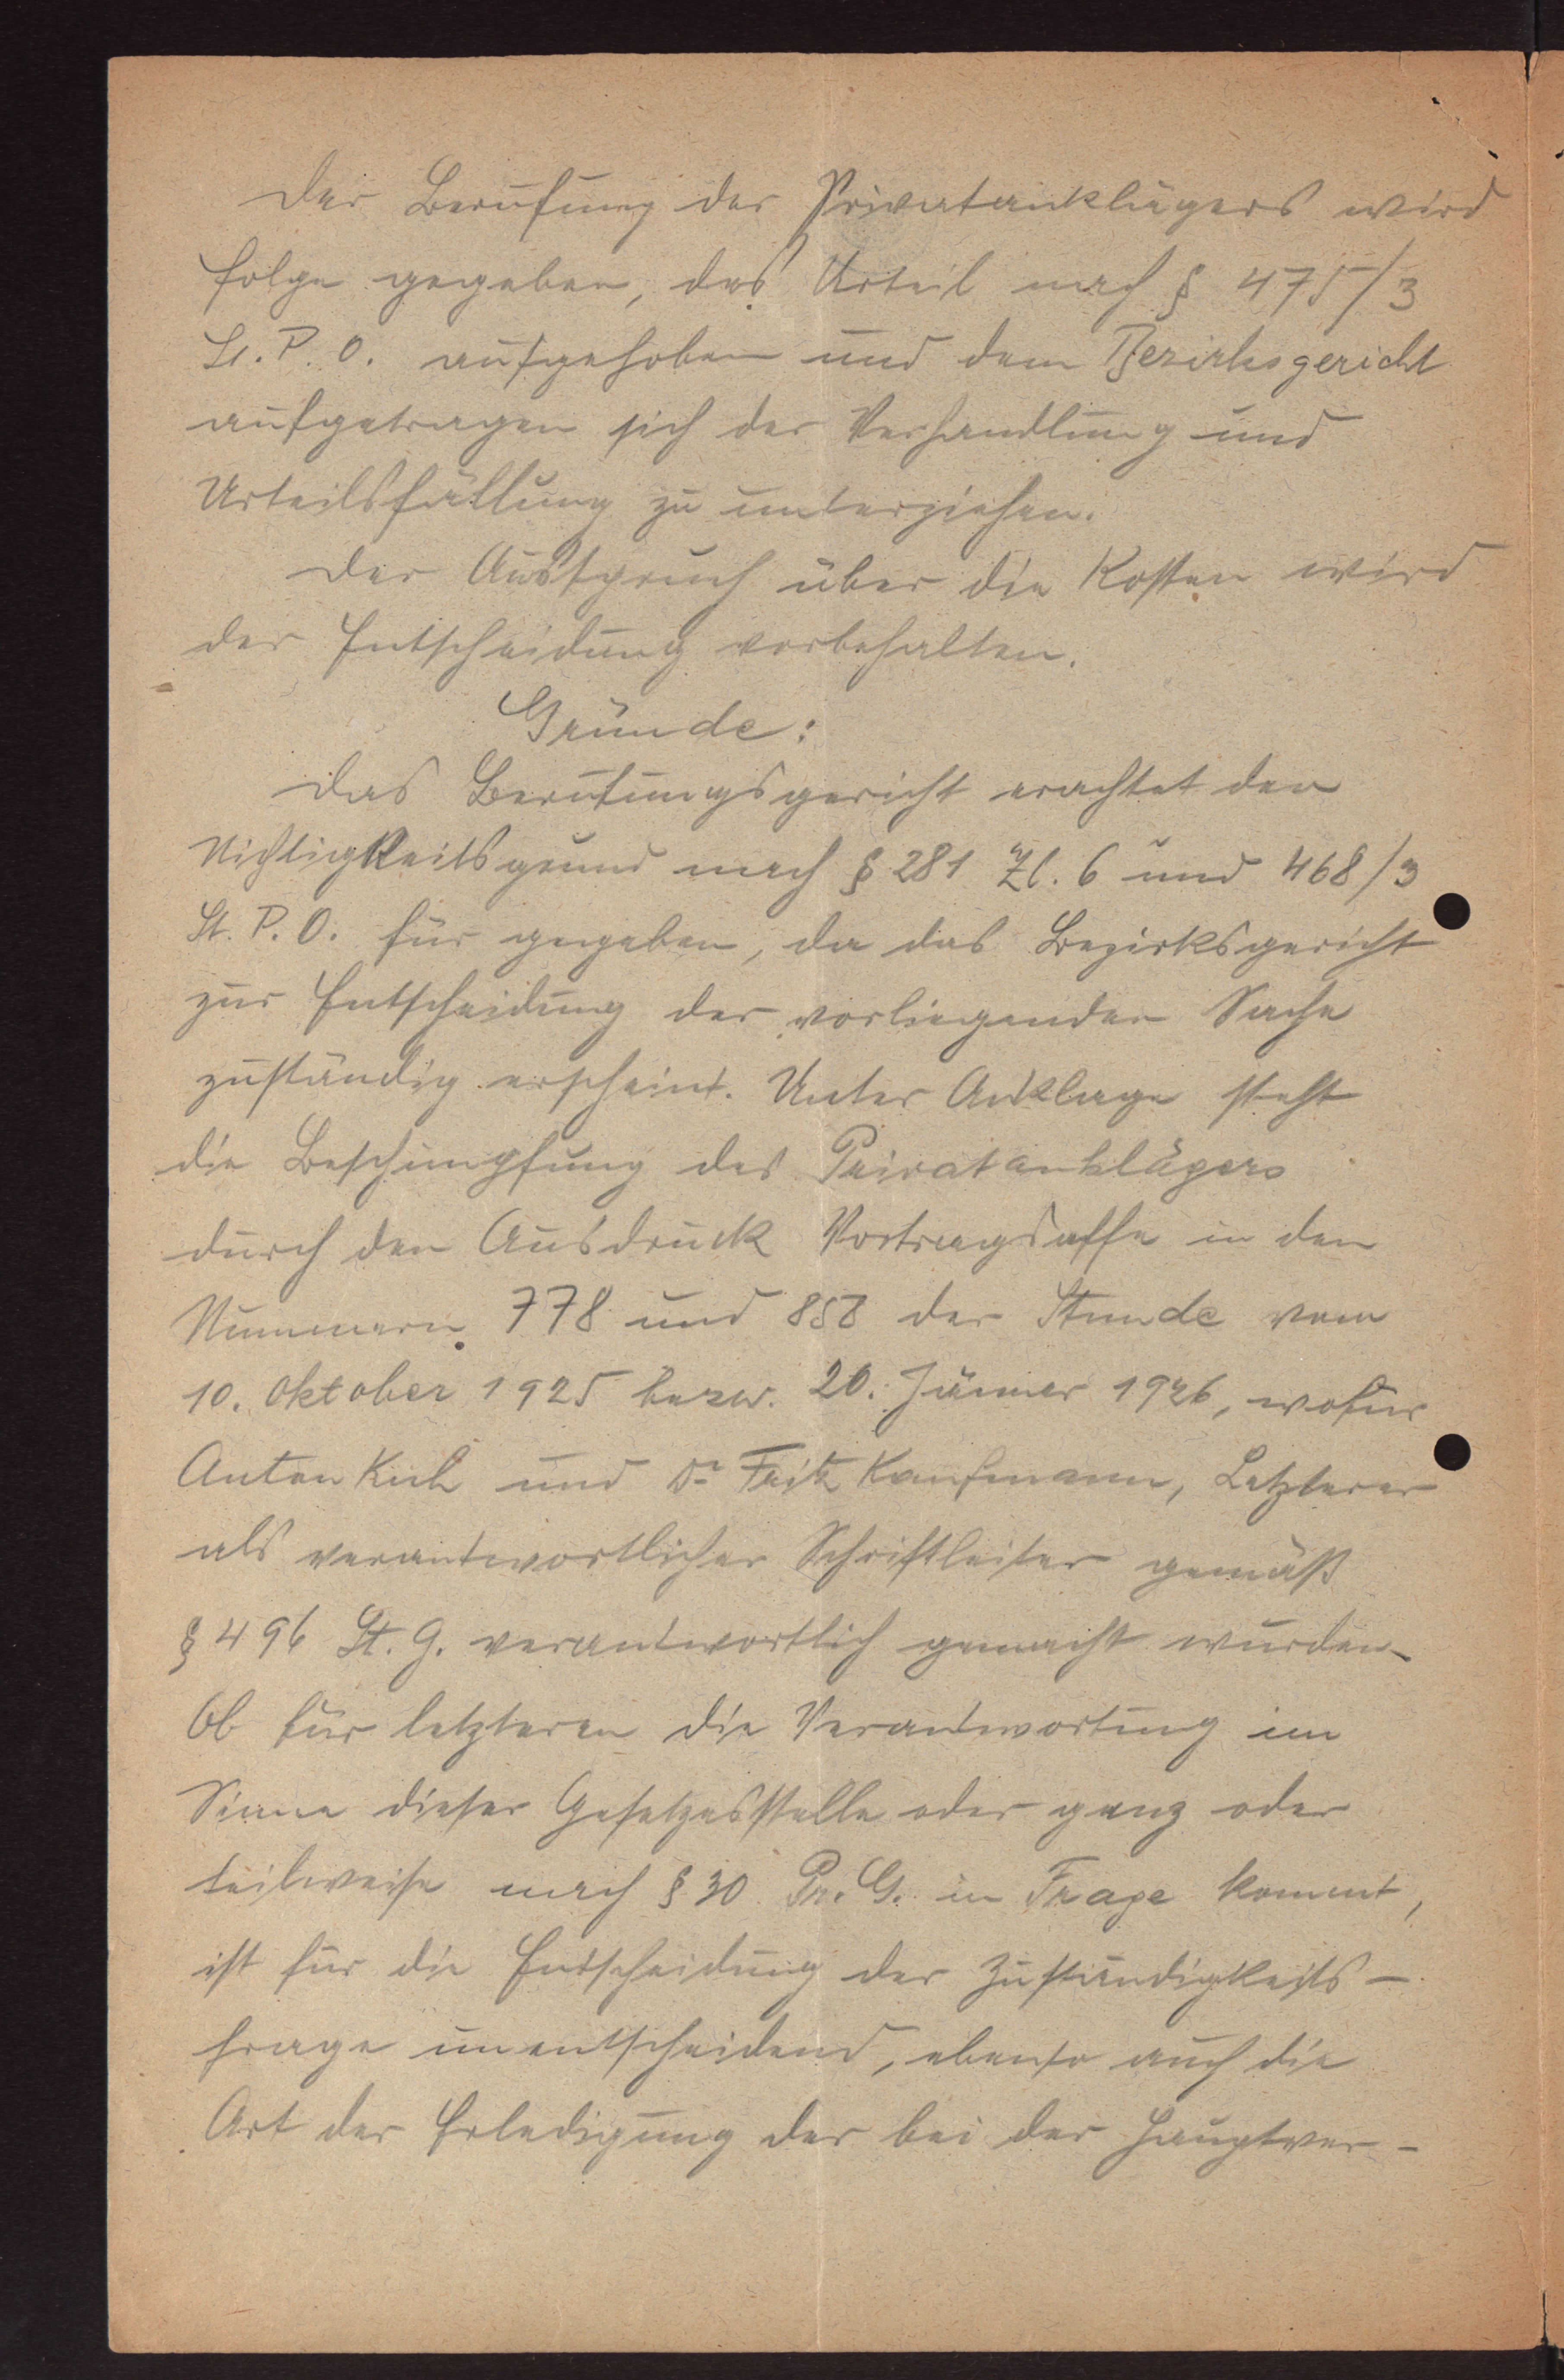 Der Berufung des Privatanklägers wird
Folge gegeben, das Urteil nach § 475/3
St. P. O. aufgehoben und dem Bezirksgericht
aufgetragen sich der Verhandlung und
Urteilsfällung zu unterziehen.
Der Ausspruch über die Kosten wird
der Entscheidung vorbehalten.
Gründe:
Das Berufungsgericht erachtet den
Nichtigkeitsgrund nach § 281 Zl. 6 und 468/3
St. P. O. für gegeben, da das Bezirksgericht
zur Entscheidung der vorliegenden Sache
zuständig erscheint. Unter Anklage steht
die Beschimpfung des Privatanklägers
durch den Ausdruck Vortragsaffe in den
Nummern 778 und 858 der Stunde vom
10. Oktober 1925 bezw. 20. Jänner 1926, wofür
Anton Kuh und Dr Fritz Kaufmann, Letzterer
als verantwortlicher Schriftleiter gemäß
§ 496 St. G. verantwortlich gemacht wurden.
Ob für letzteren die Verantwortung im
Sinne dieser Gesetzesstelle oder ganz oder
teilweise nach § 30 Pr. G. in Frage kommt,
ist für die Entscheidung der Zuständigkeits-
frage unentscheidend, ebenso auch die
Art der Erledigung der bei der Hauptver-